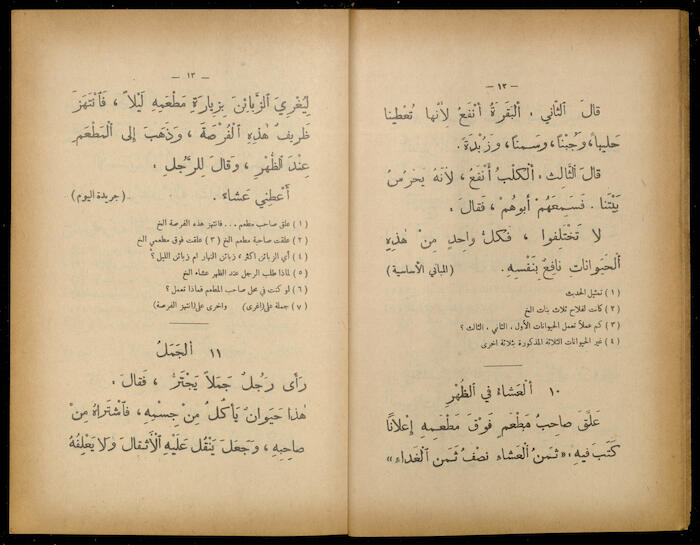 — ١٢ —
قالَ ٱلثّاني ، ٱلبَقَرَةُ أَنْفَعُ لِأَنَّها تُعْطينا
حَليباً، وَجُبْناً، وَسَمناً، وَزُبْدَةً .
قالَ ٱلثّالث ، ٱلكَلْبُ أَنْفَعُ ، لأَنَّهُ يَحْرُسُ
بَيْتَنا . فَسَمِعَهُمْ أَبوهُمْ ، فَقالَ ،
لا تَخْتَلِفوا ، فَكلُّ واحِدٍ مِنْ هٰذِهِ
ٱلحَيَواناتِ نافِعٌ بِنَفْسِهِ . (المباني الأساسية)
( ١ ) تمثيل الحديث
( ٢ ) كانت لفلاح ثلاث بنات الخ
( ٣ ) كم عملاً تعمل الحيوانات الأول ، الثاني ، الثالث ؟
( ٤ ) غير الحيوانات الثلاثة المذكورة بثلاثة اخرى
١٠ ٱلْعَشاءُ في ٱلظُهْرِ
عَلَّقَ صاحِبُ مَطْعَمٍ فَوْقَ مَطْعَمِهِ إِعْلانًا
كَتَبَ فيهِ ،« ثَمَنُ ٱلعَشاءِ نصْفُ ثَمَنِ ٱلْغَداءِ »
— ١٣ —
لِيُغْرِيَ ٱلزَّبائِنَ بِزِيارَةِ مَطْعَمِهِ لَيْلاً ، فَٱنْتَهَزَ
ظَريفٌ هٰذِهِ ٱلْفُرْصَةَ ، وَذَهَبَ إِلى ٱلْمَطْعَمِ
عِنْدَ ٱلظُّهْرِ ، وَقالَ لِلرَّجُلِ ،
أَعْطِني عَشاءً . ( جريدة اليوم )
( ١ ) علق صاحب مطعم ... فانتهز هذه الفرصة الخ
( ٢ ) علقت صاحبة مطعم الخ ( ٣ ) علقت فوق مطعمي الخ
( ٤ ) أي الزبائن اكثر » زبائن النهار ام زبائن الليل ؟
( ٥ ) لماذا طلب الرجل عند الظهر عشاء الخ
( ٦ ) لو كنت في محل صاحب المطعم فماذا تعمل ؟
( ٧ ) جملة على (اغرى) واخرى على (انتهز الفرصة)
١١ ٱلجَمَلُ
رَأَى رَجُلٌ جَمَلاً يَجْتَرُّ ، فَقالَ ،
هٰذا حَيَوانٌ يَأْكُلُ مِنْ جِسْمِهِ ، فَٱشْتَراهُ مِنْ
صاحِبِهِ ، وَجَعَلَ يَنْقُل عَلَيْهِ ٱلْأَثْقالَ وَلا يَعْلِفُهُ